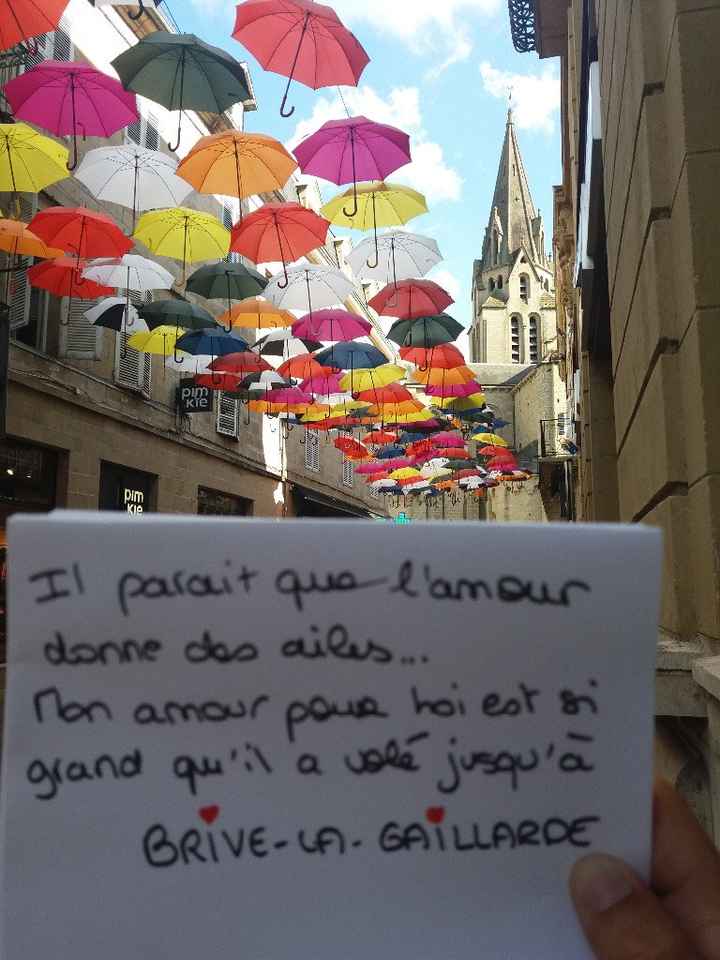 pim
kie
pim
kie
Il parait que l'amour
donne des ailes...
Mon amour pour toi est si
grand qu'il a volé jusqu'à
BRIVE-LA-GAILLARDE